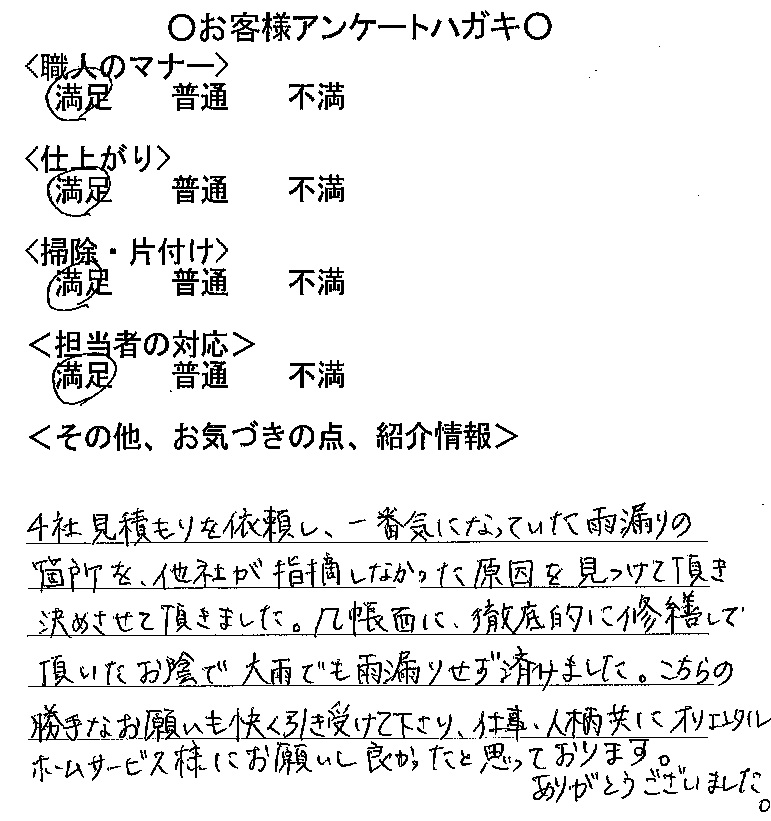 ○お客様アンケートハガキ○
<職人のマナー>
満足 普通 不満
<仕上がり>
満足 普通 不満
<掃除・片付け>
満足 普通 不満
<担当者の対応>
満足 普通 不満
<その他、お気づきの点、紹介情報>
4社見積もりを依頼し、一番気になっていた雨漏りの
箇所を、他社が指摘しなかった原因を見つけて頂き
決めさせて頂きました。几帳面に、徹底的に修繕して
頂いたお陰で大雨でも雨漏りせず済けました。こちらの
勝手なお願いも快く引き受けて下さり、仕事、人柄共にオリエンタル
ホームサービス様にお願いし良かったと思っております。
ありがとうございました。